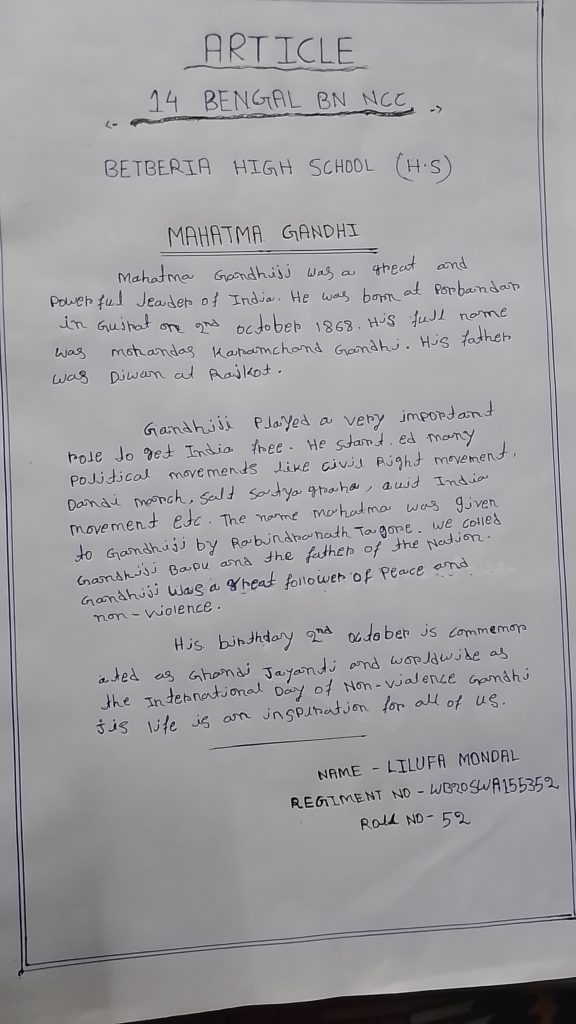 ARTICLE
14 BENGAL BN NCC
BETBERIA HIGH SCHOOL (H.S)
MAHATMA GANDHI
Mahatma Gandhiji was a great and
powerful leader of India. He was born at Porbandar
in Gujrat on 2nd october 1868. His full name
was mohandas Karamchand Gandhi. His father
was Diwan at Rajkot.
Gandhiji Played a very important
role to get India free. He start.ed many
political movements like civil Right movement,
Dandi march, salt satya graha, quit India
movement etc. The name mahatma was given
to Gandhiji by Rabindranath Tagore. we called
Gandhiji Bapu and the father of the Nation.
Gandhiji was a great follower of Peace and
non-violence.
His birthday 2nd october is commemor
ated as Ghandi Jayanti and worldwide as
the International Day of Non-vialence Gandhi
jis life is an inspiration for all of us.
NAME - LILUFA MONDAL
REGIMENT NO - WB20SWA155352
Roll NO- 52